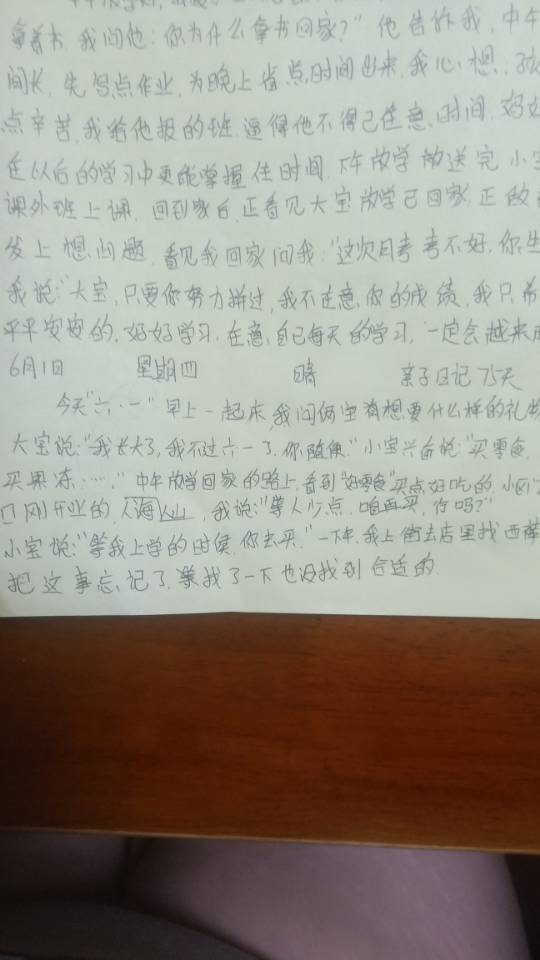 拿着书，我问他：你为什么拿书回家？"他告诉我，中午
间长，先写点作业，为晚上省点时间出来，我心想，孩
点辛苦，我给他报的班逼得他不得已在意时间，妈妈
在以后的学习中更能掌握住时间，下午放学
课外班上课，回到家后，正看见大宝放学已回家，正
发上想问题，看见我回家问我："这次月考考不好，你生
我说："大宝，只要你努力拼过，我不在意你的成绩，我只希
平平安安的，好好学习，在意自己每天的学习，一定会越来
6月1日 星期四 晴 亲子日记75天
今天"六·一"早上一起床我问俩宝有想要什么样的礼物
大宝说："我长大了，我不过六一了，你随便。"小宝兴奋说："买零食，
买果冻……"中午放学回家的路上，看到"好零食"买点好吃的，
口刚开业的，人海人山，我说："等人少点，咱再买，行吗？"
小宝说："等我上学的时候，你去买。"一下午，我上街去店里找西
把这事忘记了，等找了一下也没找到合适的.